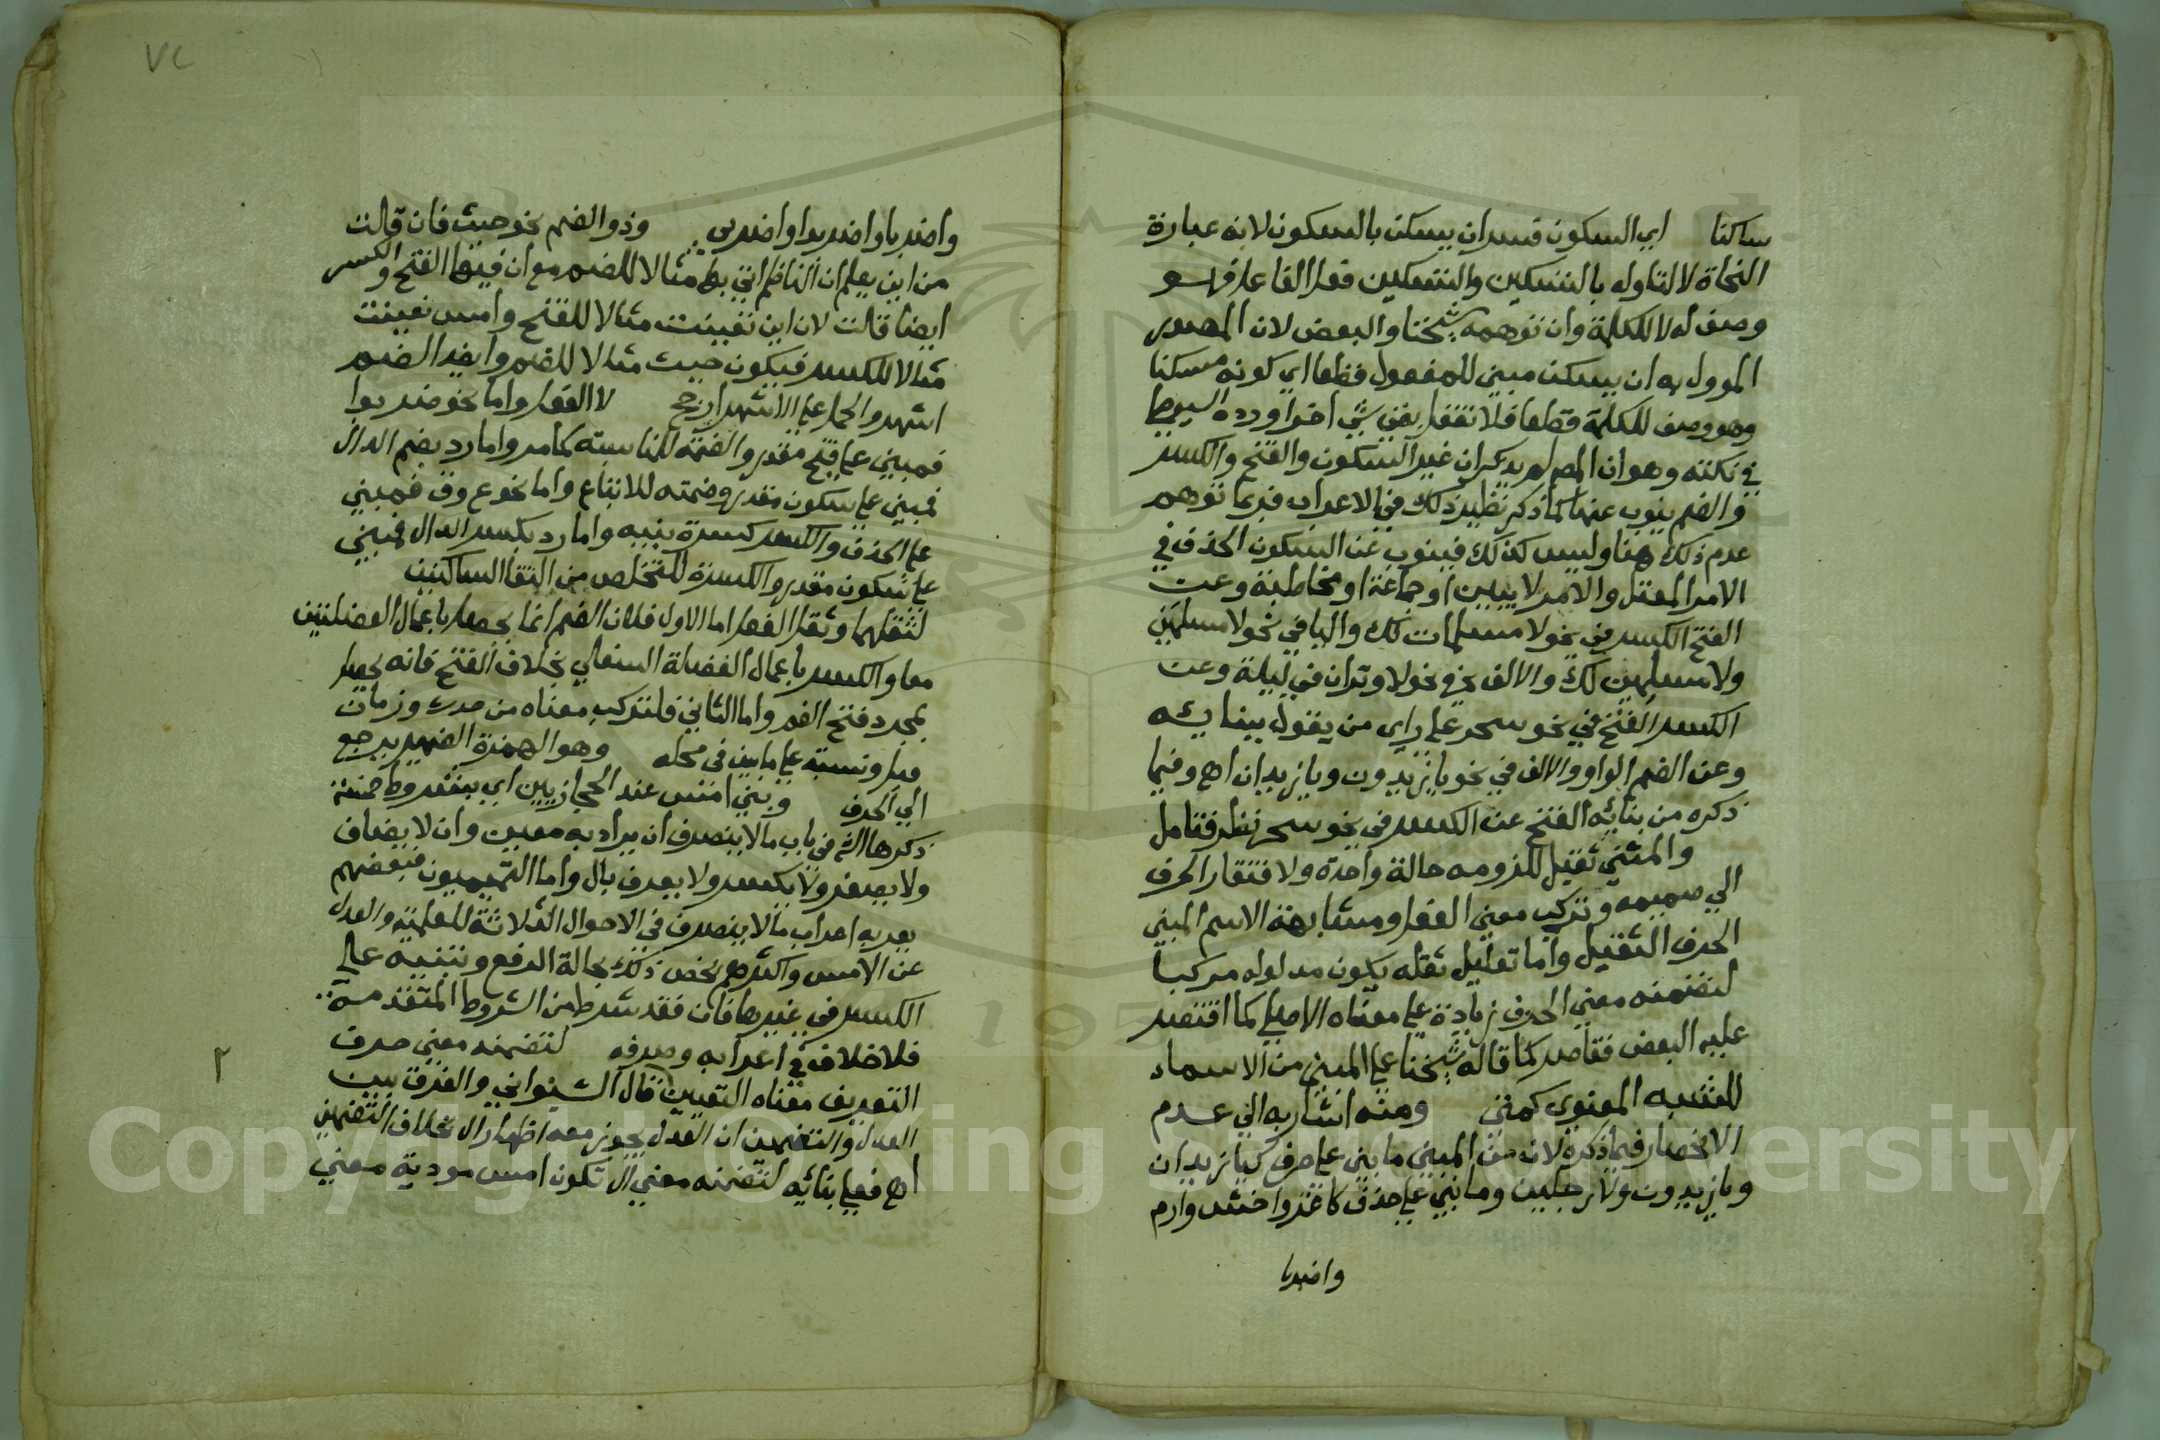 ساكنا اي السكون فسر ان يسكن بالسكون لانه عبارة
النحاة لا لتاوله بالتسكين والتسكين فعل الفاعل فهو
وصف له لا للكلمة وان توهمه شيخنا والبعض لان المصدر
الموول به ان يسكن مبني للمفعول قطعا اي كونه مسكنا
وهو وصف للكلمة قطعا فلا تغفل بقي شي اخر اورده السيوطي
في نكته وهو ان المص لم يذكر ان غير السكون والفتح والكسر
والضم ينوب عنها كما ذكر نظير ذلك في الاعراب فربما توهم
عدم ذلك هنا وليس كذلك فينوب عن السكون الحذف في
الامر المعتل والامر لاثنين او جماعة او مخاطبة وعن
الفتح الكسر في نحو لا مسلمات لك واليا في نحو لا مسلمين
ولا مسلمين لك والالف في نحو لا وتران في ليلة وعن
الكسر الفتح في نحو سحر على راي من يقول ببنائه
وعن الضم الواو والالف في نحو يا زيدون ويا زيدان اه وفيما
ذكره من بنائه الفتح عن الكسر في نحو سحر نظر فتامل
والمبني ثقيل للزومه حالة واحدة ولافتقار الحرف
الي ضميمه وتركب معني الفعل ومشابهة الاسم المبني
الحرف الثقيل واما تعليل ثقله بكون مدلوله مركبا
لتضمنه معني الحرف زيادة علي معناه الاصلي كما اقتصر
عليه البعض فقاصر كما قاله شيخنا علي المبني من الاسماء
للشبه المعنوي كمتى ومنه اشار به الي عدم
الانحصار فيما ذكره لان من المبني ما بني علي حرف كيا زيدان
ويا زيدون ولا رجلين وما بني علي حذف كاغز واخش وارم
واضربا
واضربا واضربوا واضربي وذو الضم نحو حيث فان قالت
من اين يعلم ان الناظم اتي بها مثالا للضم مع ان فيها الفتح والكسر
ايضا قالت لان اين تعينت مثالا للفتح وامس تعينت
مثالا للكسر فيكون حيث مثالا للضم وايضا الضم
اشهر والحمل علي الاشهر ارجح لا الفعل واما نحو ضربوا
فمبني علي فتح مقدر والضمة للمناسبة كما مر واما رد بضم الدال
فمبني علي سكون مقدر وضمته للاتباع واما نحو ع وق فمبني
علي الحذف والكسر كسرة بنية واما رد بكسر الدال فمبني
علي سكون مقدر والكسرة للتخلص من التقا الساكنين
لثقلهما وثقل الفعل اما الاول فلان الضم انما يحصل باعمال العضلتين
معا والكسر باعمال العضلة السفلي بخلاف الفتح فانه يحصل
بمجرد فتح الفم واما الثاني فلتركب معناه من حدث وزمان
قيل ونسبة علي ما بين في محله وهو الهمزة الضمير يرجع
الي الحرف وبني امس عند الحجازيين اي بشروط خمسة
ذكرها الش في باب ما لا ينصرف ان يراد به معين وان لا يضاف
ولا يصغر ولا يكسر ولا يعرف بال واما التميميون فبعضهم
يعربه اعراب ما لا ينصرف في الاحوال الثلاثة للعلمية والعدل
عن الامس واكثرهم يخص ذلك بحالة الرفع ويبنيه علي
الكسر في غيرها فان فقد شرط من الشروط المتقدمة
فلا خلاف في اعرابه وصرفه لتضمنه معني حرف
التعريف معناه التعيين قال الشنواني والفرق بين
العدل والتضمن ان العدل يجوز معه اظهار ال بخلاف التضمن
اه فعلي بنائه لتضمنه معني ال تكون امس مودية معني